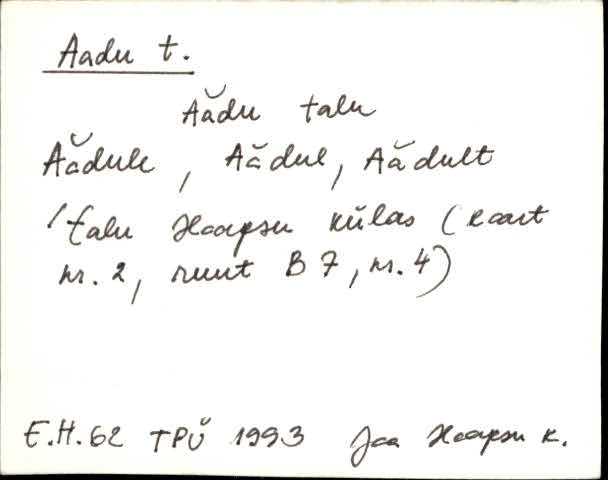 Aadu t.
Aădu talu
Aădule, Aădul, Aădult
/talu Haapsu külas (kaart
nr. 2, ruut B 7, nr. 4)
E.H. 62 TPÜ 1993 Jaa Haapsu k.